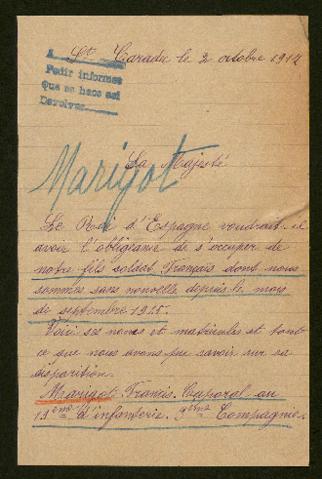 St Caradec le 2 octobre 1917
A
Pedir informes
Que se hace asi
Devolver
Marigot
Sa Majesté
Le Roi d'Espagne voudrait-il
avoir l'obligeance de s'occuper de
notre fils soldat Français dont nous
sommes sans nouvelle depuis le mois
de septembre 1915.
Voici ses noms et matricules et tout
ce que nous avons pu savoir sur sa
disparition.
Marigot Francis. Caporal au
19eme d'infanterie. 9eme Compagnie.